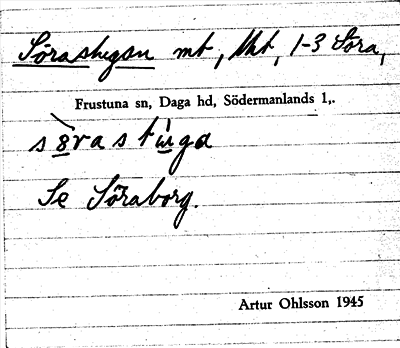 Sörastugan mt, lht, 1-3 Söra,
Frustuna sn, Daga hd, Södermanlands l,.
sörastuga
Se Söraborg.
Artur Ohlsson 1945